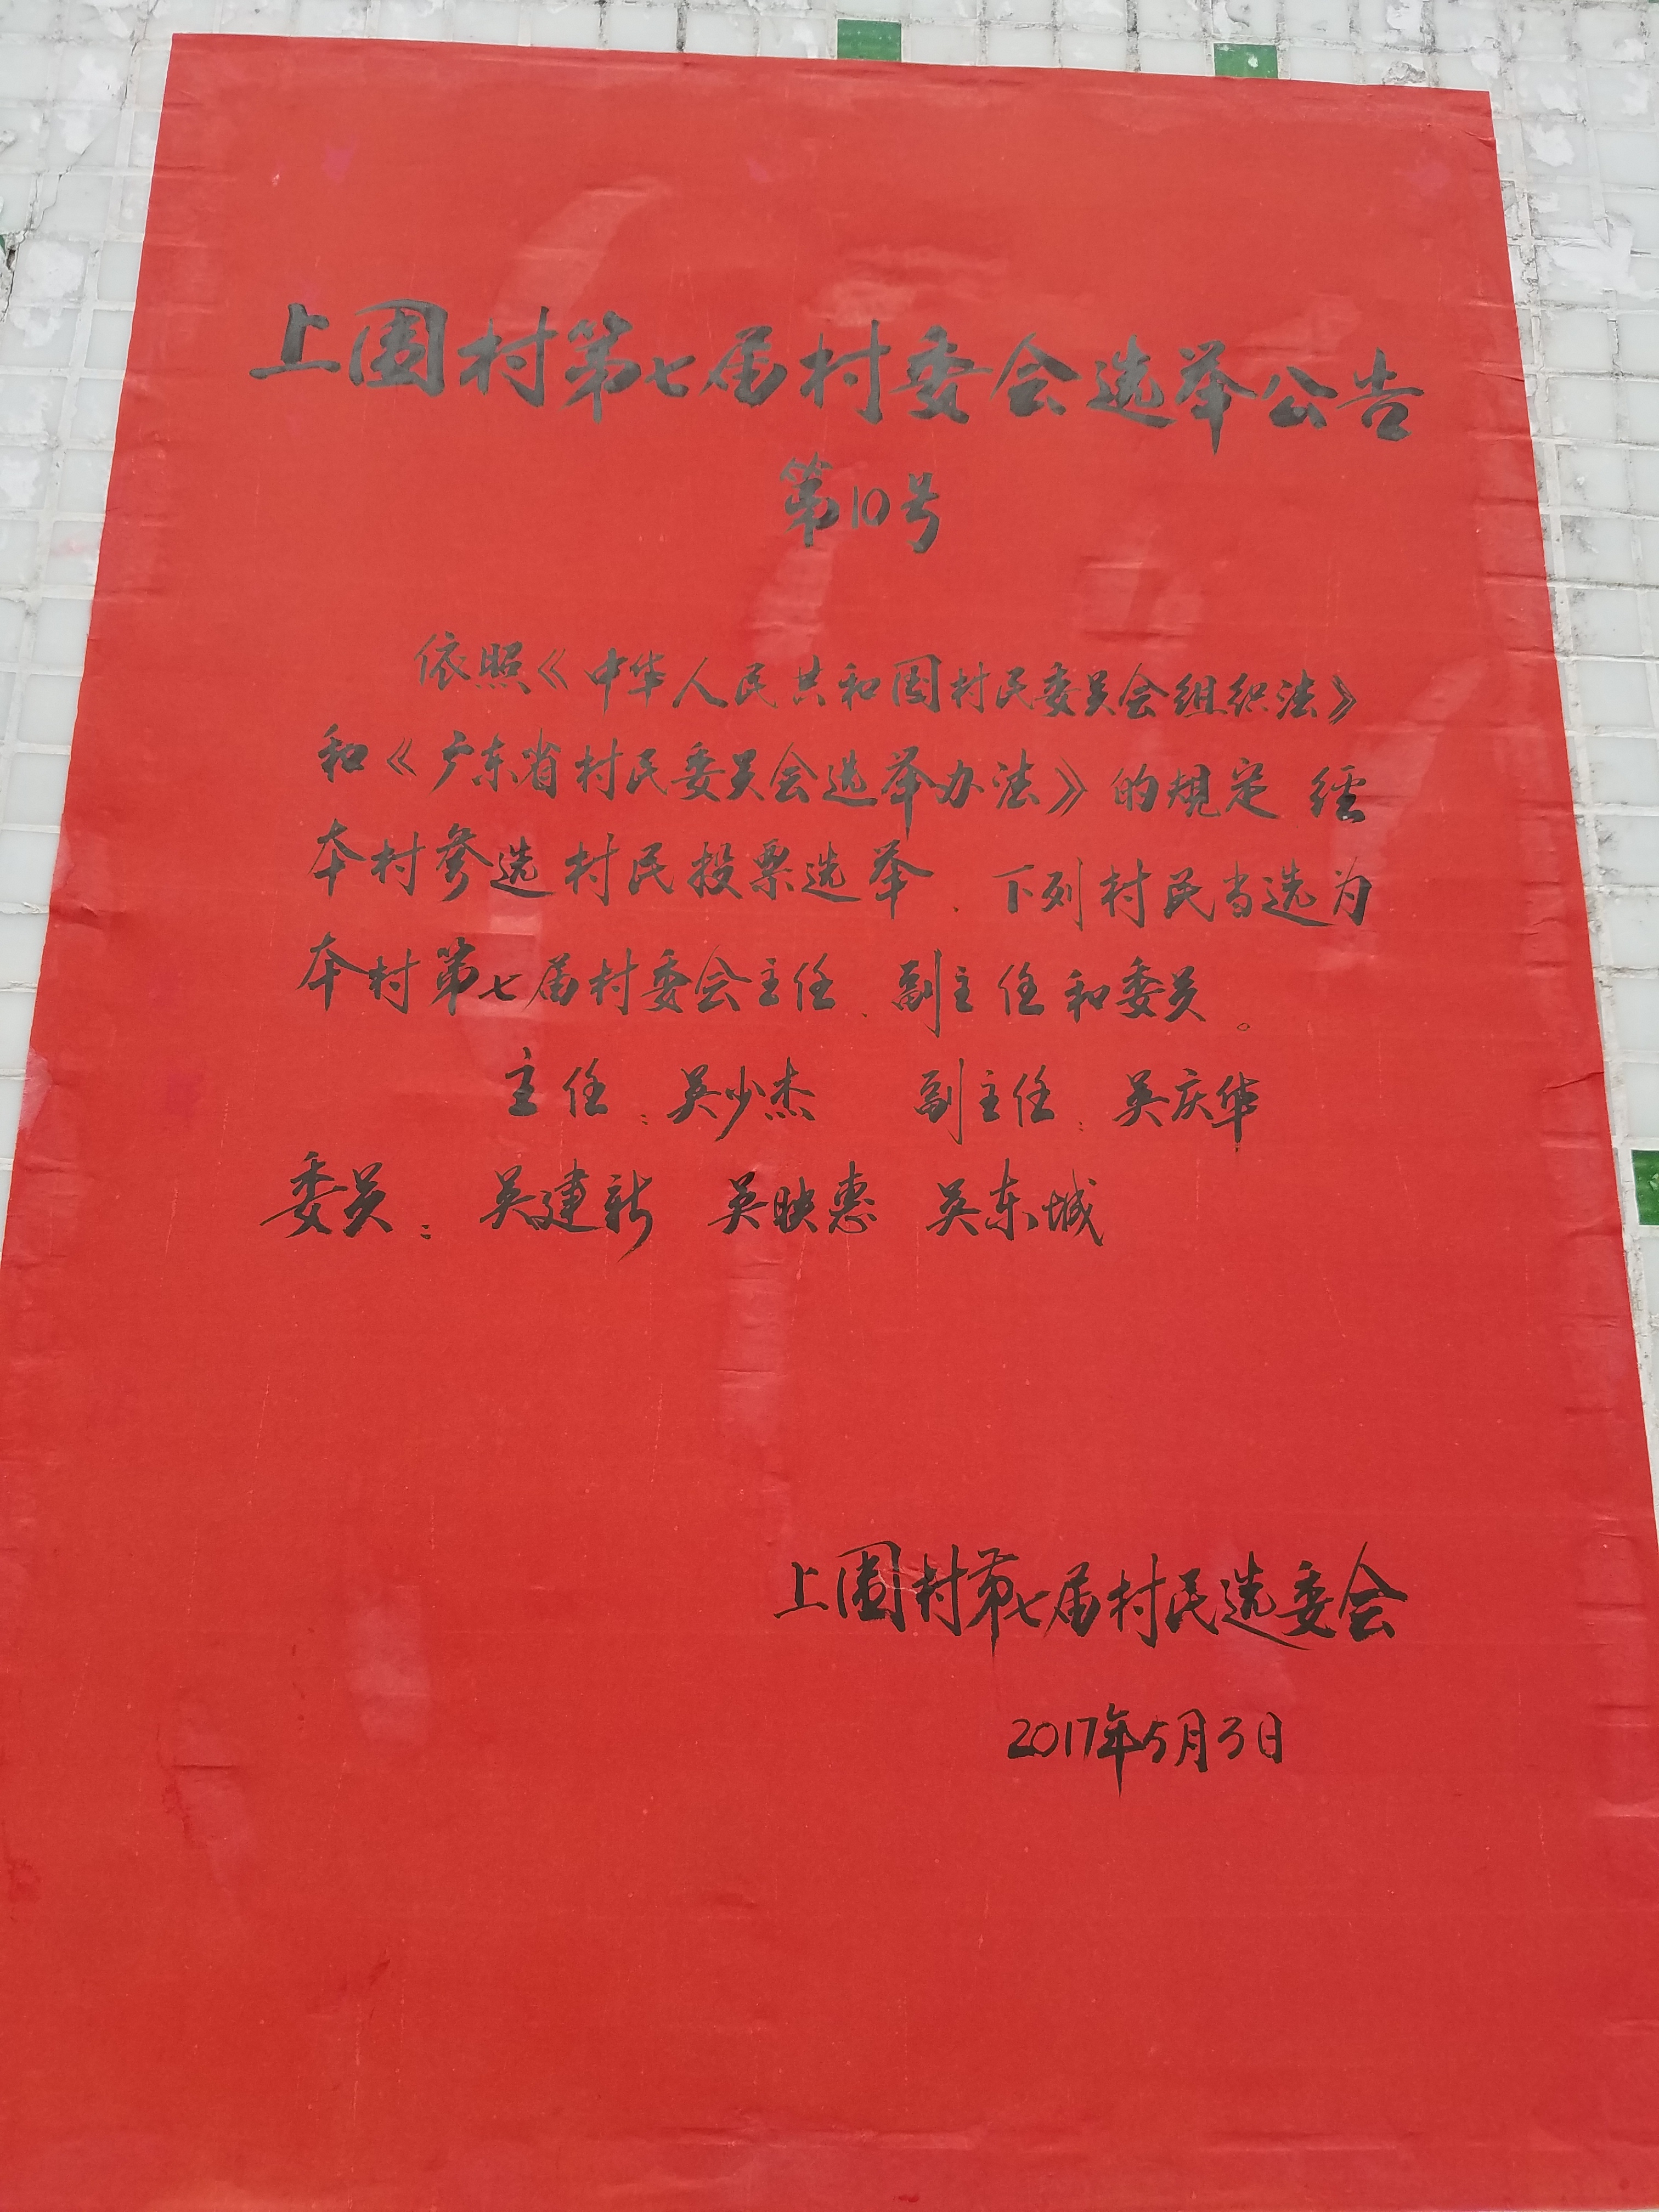 上围村第七届村委会选举公告
第10号
依照《中华人民共和国村民委员会组织法》
和《广东省村民委员会选举办法》的规定 经
本村参选村民投票选举、下列村民当选为
本村第七届村委会主任、副主任和委员。
主任：吴少杰 副主任：吴庆华
委员：吴建新 吴映惠 吴东城
上围村第七届村民选委会
2017年5月3日